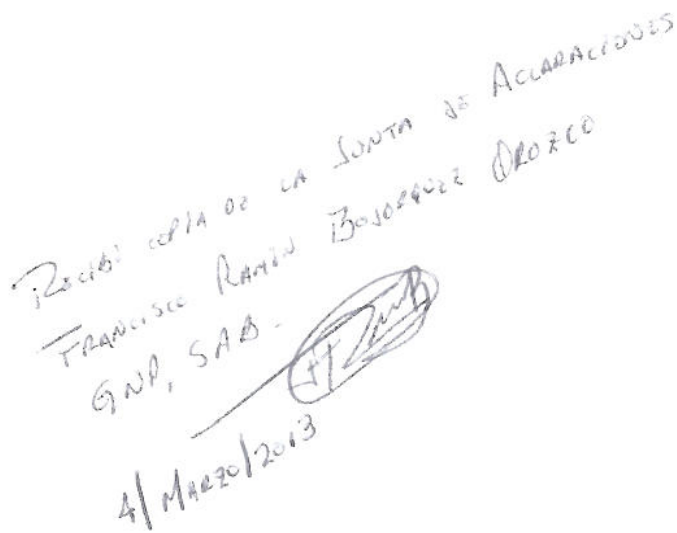 Recibí copia de la Junta de Aclaraciones
Francisco Ramón Bojorquez Orozco
GNP, SAB.
4/Marzo/2013